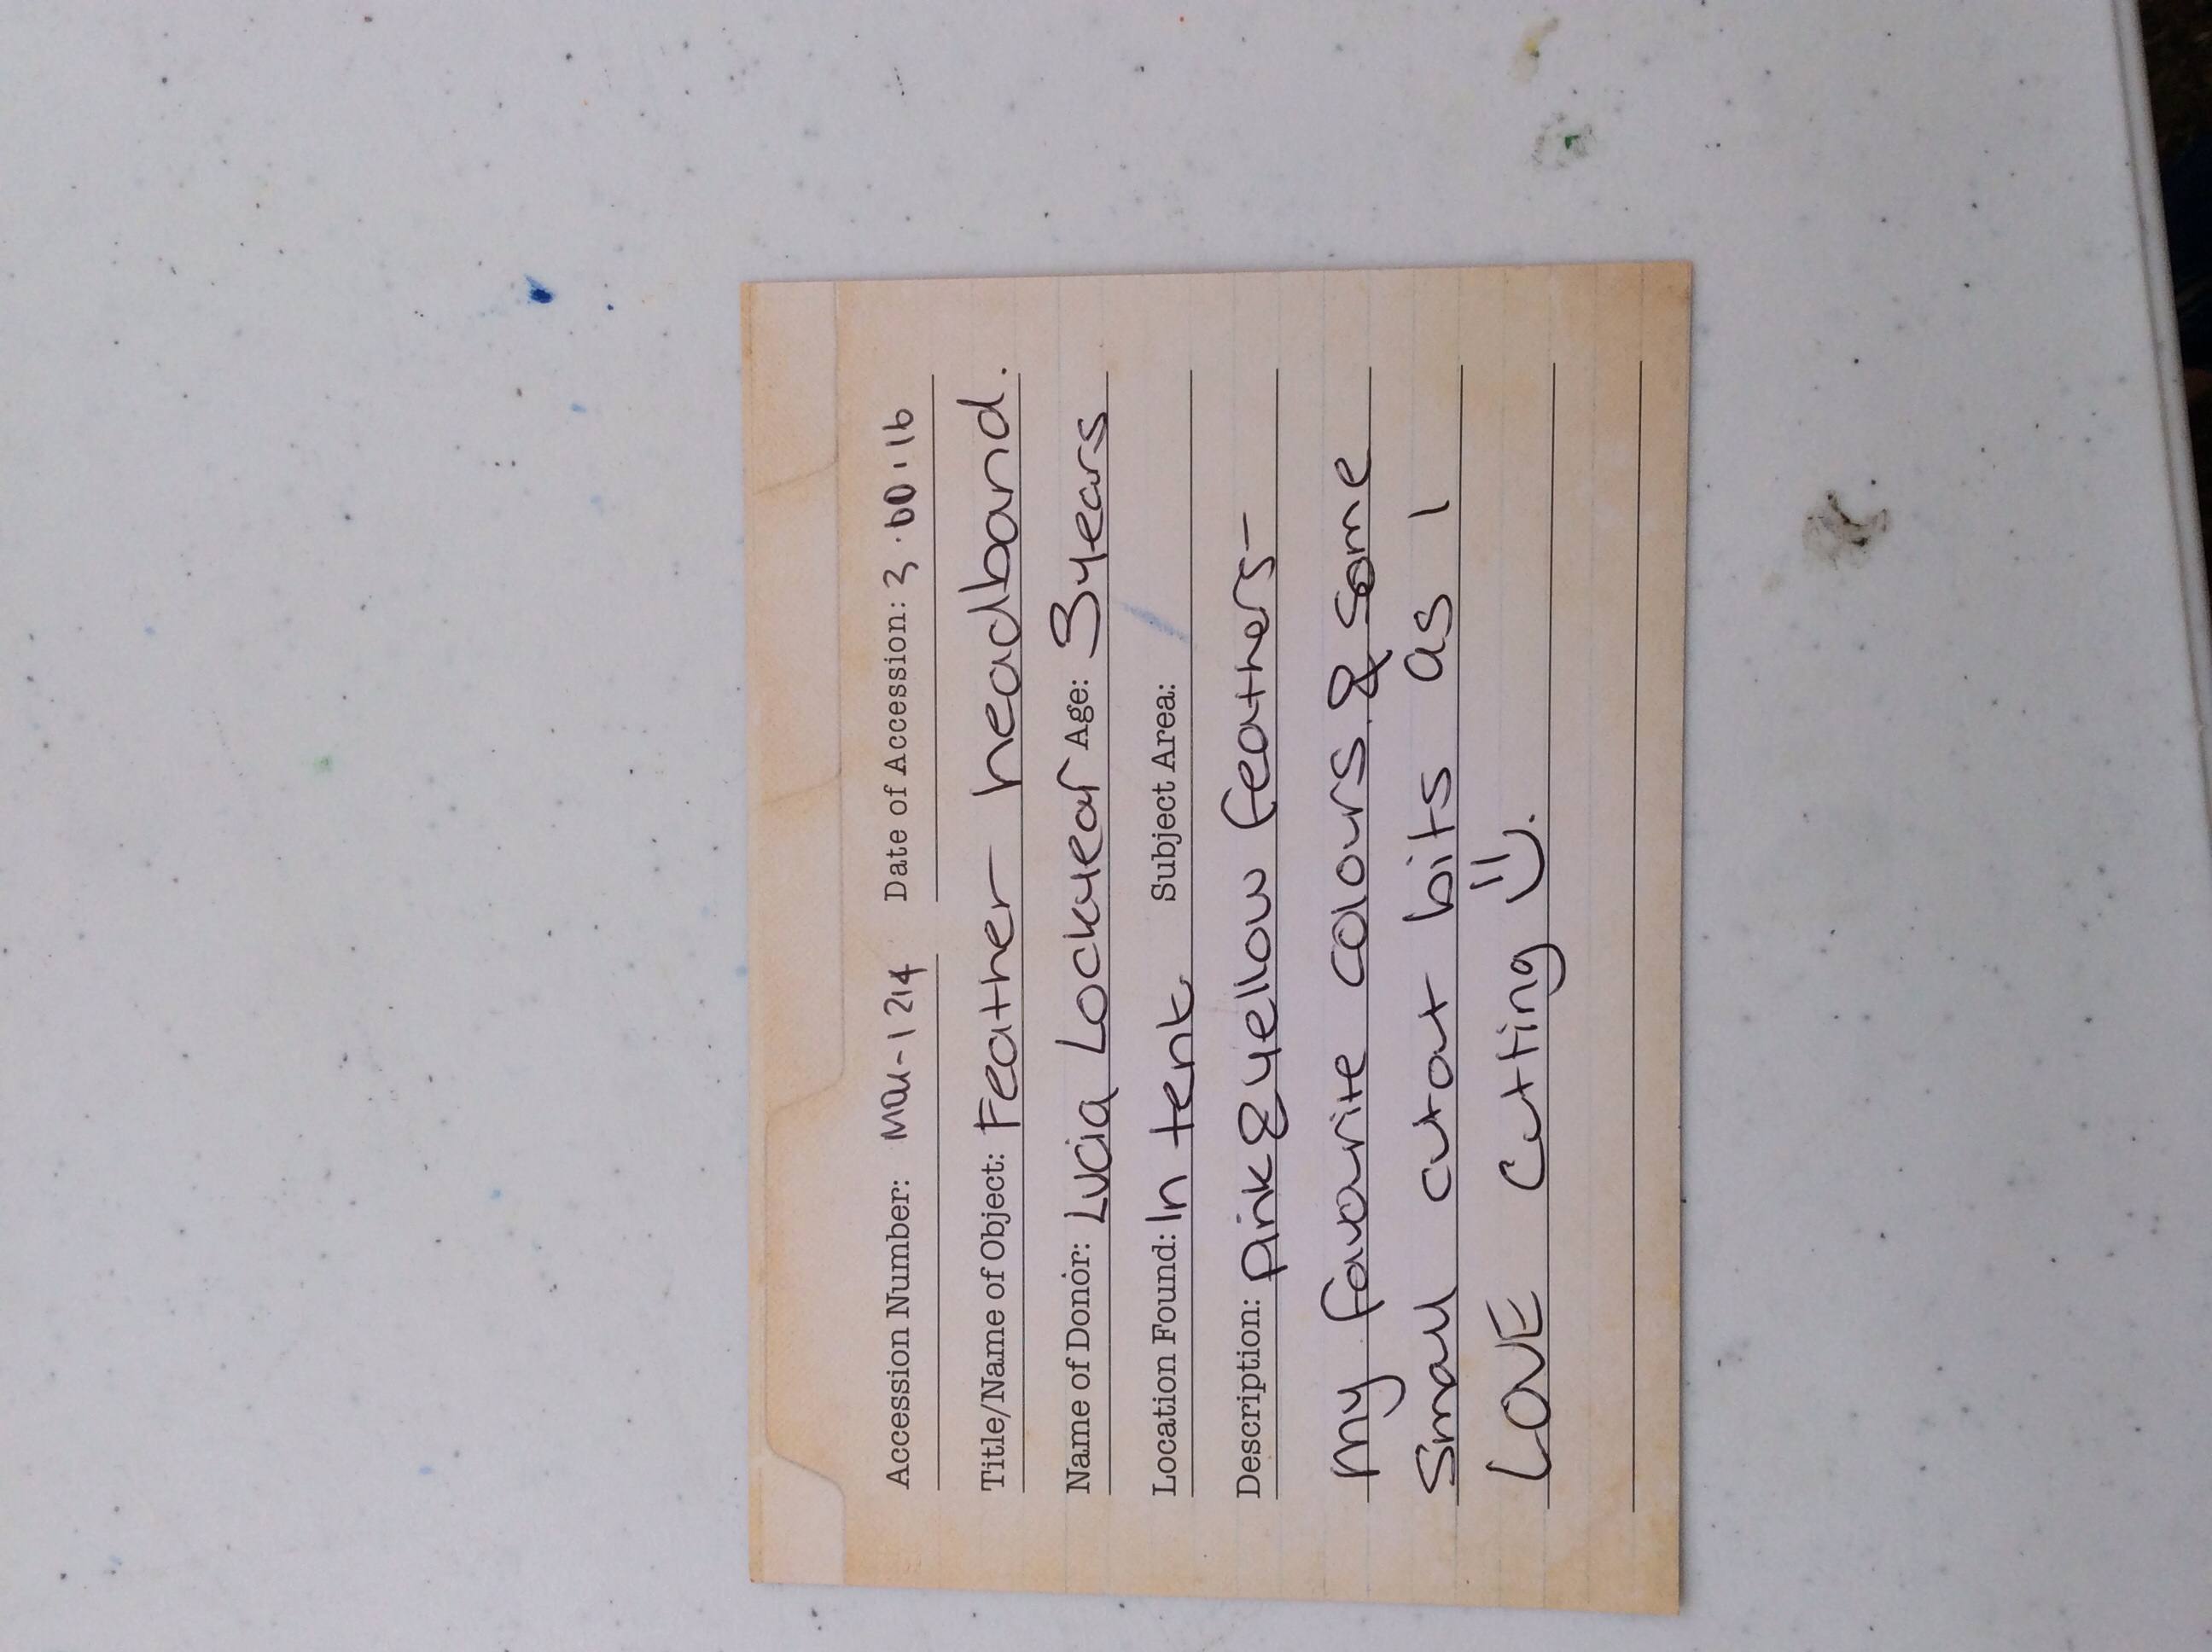 Accession Number: MAU-1214 Date of Accession: 3.00.16
Title/Name of Object: Feather headband.
Name of Donor: Lucia Lockyear Age: 3 years
Location Found: In tent. Subject Area:
Description: pink & yellow feathers-
my favourite colours & some
small cutout bits as I
LOVE cutting =).